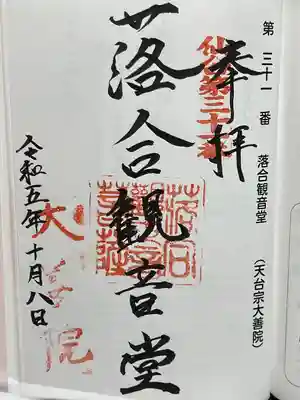 第三十一番 落合観音堂 (天台宗大善院)
奉拝
仙台第三十一番
落合観音堂
令和五年十月八日
大善院